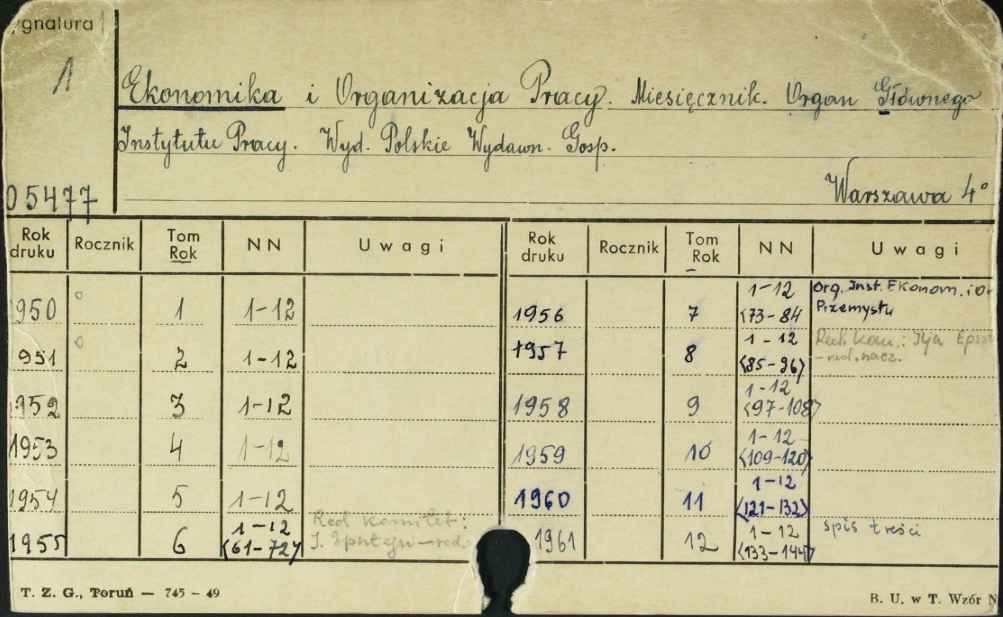 gnatura
1
Ekonomika i Organizacja Pracy. Miesięcznik. Organ Głównego
Instytutu Pracy. Wyd. Polskie Wydawn. Gosp.
05477 Warszawa 4°
Rok druku Rocznik Tom Rok NN Uwagi
1950 1 1-12
1951 2 1-12
1952 3 1-12
1953 4 1-12
1954 5 1-12
1955 6 1-12 Red Komitet:
<61-72> J. – red.
Rok druku Rocznik Tom Rok NN Uwagi
1956 7 1-12 Org. Inst. Ekonom. i Or
<73-84 Przemysłu
1957 8 1-12 Red. Kom.: Ilja
<85-96> -red. nacz.
1958 9 1-12
<97-108>
1959 10 1-12
<109-120>
1960 11 1-12
<121-132>
1961 12 1-12 spis treści
<133-144>
T. Z. G., Toruń — 745 - 49
B. U. w T. Wzór N